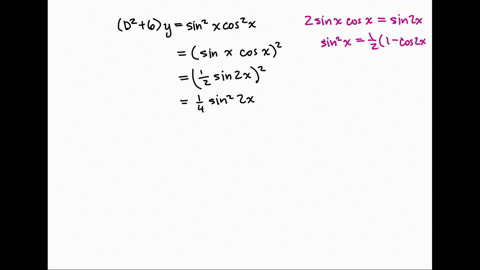 (D²+6)y = sin²x cos²x
= (sin x cos x)²
= (½ sin 2x)²
= ¼ sin² 2x
2 sin x cos x = sin 2x
sin²x = ½(1-cos2x